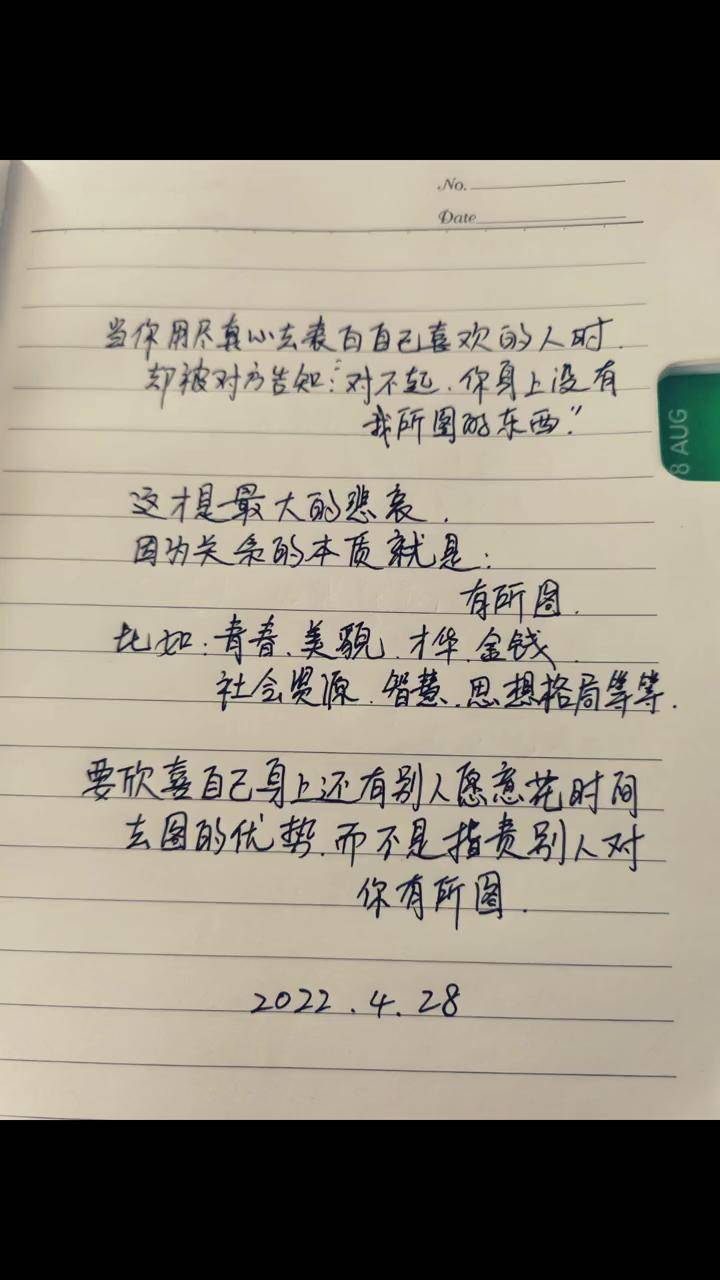 No.
Date
当你用尽真心去表白自己喜欢的人时.
却被对方告知:“对不起.你身上没有
我所图的东西.”
这才是最大的悲哀.
因为关系的本质就是:
有所图.
比如:青春.美貌.才华.金钱.
社会资源.智慧.思想格局等等.
要欣喜自己身上还有别人愿意花时间
去图的优势.而不是指责别人对
你有所图.
2022.4.28
8 AUG